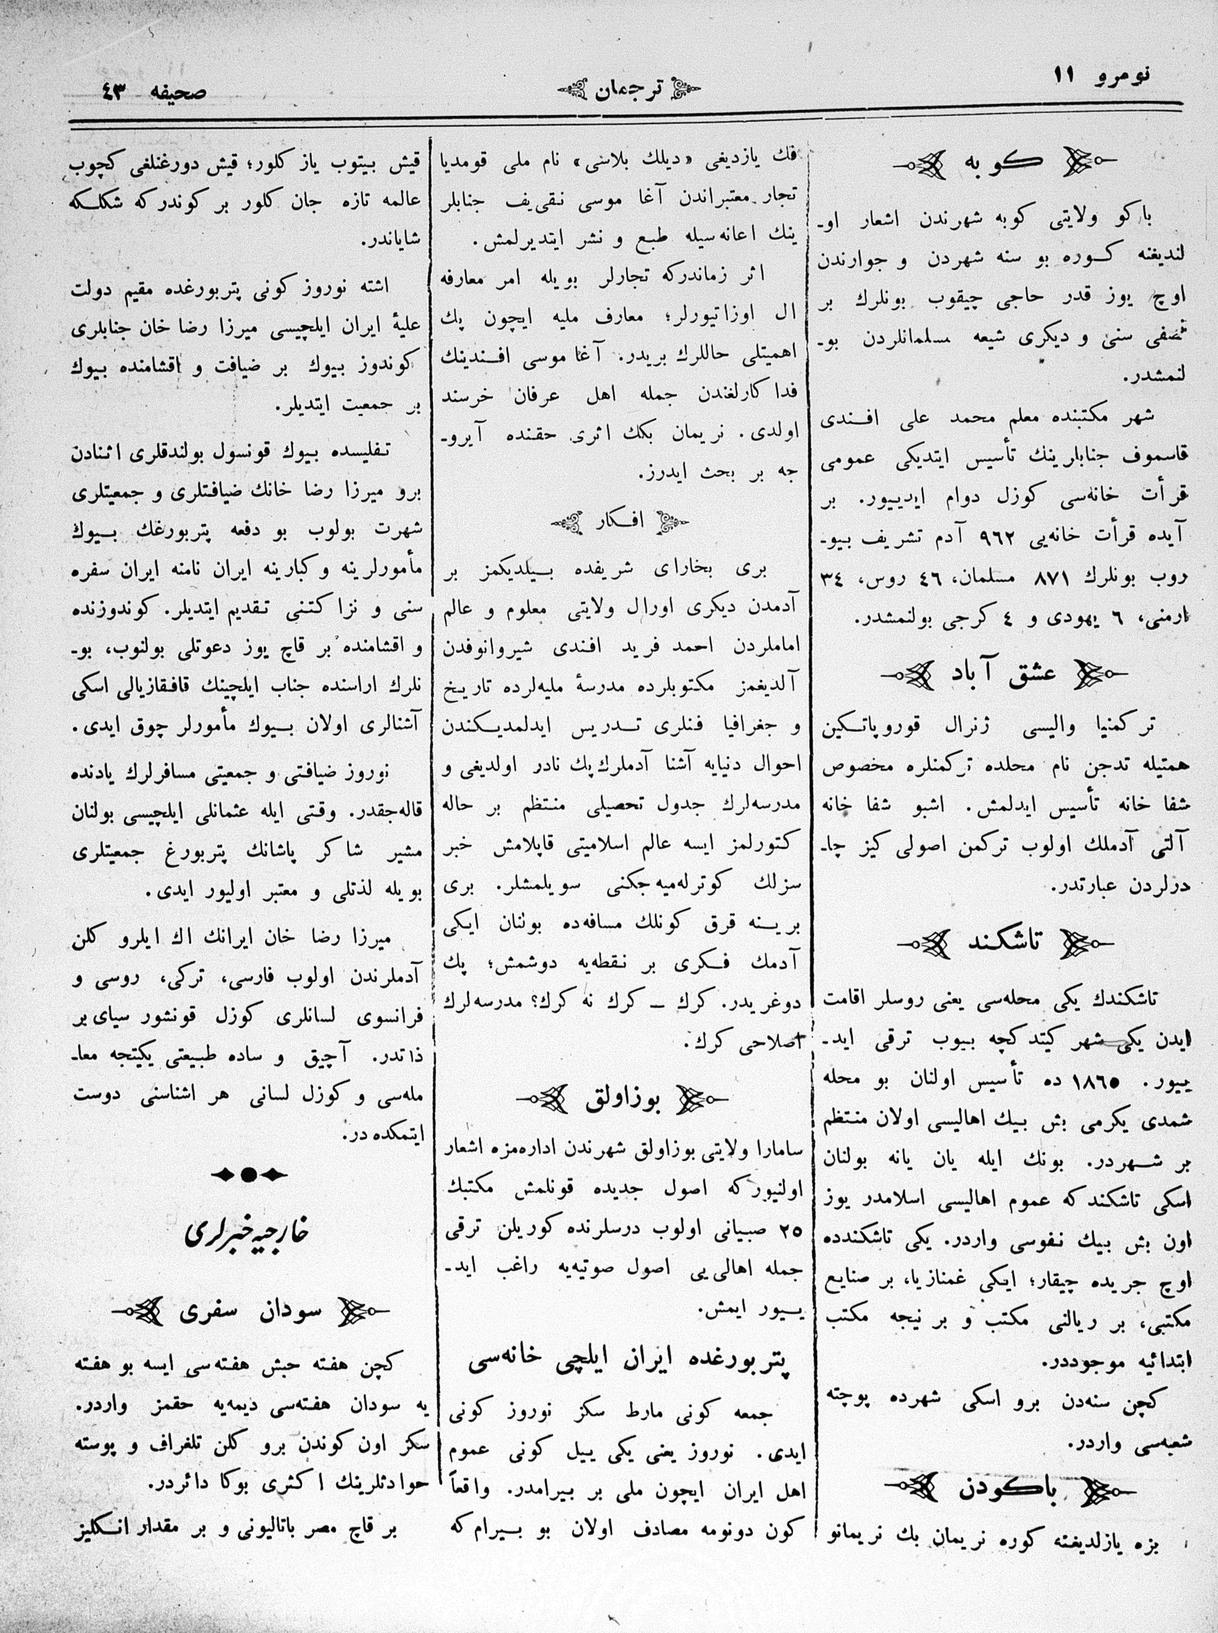 نومرو ١١
ترجمان
صحیفه ٤٣
كوبه
باكو ولایتی كوبه شهرندن اشعار او-
لندیغنه كوره بو سنه شهردن و جوارندن
اوچ یوز قدر حاجی چیقوب بونلرك بر
نصفی سنی و دیكری شیعه مسلمانلردن بو-
لنمشدر.
شهر مكتبنده معلم محمد علی افندی
قاسموف جنابلرینك تأسیس ایتدیكی عمومی
قرأت خانه‌سی كوزل دوام ایدییور. بر
آیده قرأت خانه‌یی ٩٦٢ آدم تشریف بیو-
روب بونلرك ٨٧١ مسلمان، ٤٦ روس، ٣٤
ارمنی، ٦ یهودی و ٤ كرجی بولنمشدر.
عشق آباد
تركمنیا والیسی ژنرال قوروپاتكین
همتیله تدجن نام محلده تركمنلره مخصوص
شفا خانه تأسیس ایدلمش. اشبو شفا خانه
آلتی آدملك اولوب تركمن اصولی كیز چا-
درلردن عبارتدر.
تاشكند
تاشكندك یكی محله‌سی یعنی روسلر اقامت
ایدن یكی شهر كیتدكچه بیوب ترقی اید-
ییور. ١٨٦٥ ده تأسیس اولنان بو محله
شمدی یكرمی بش بیك اهالیسی اولان منتظم
بر شهردر. بونك ایله یان یانه بولنان
اسكی تاشكند كه عموم اهالیسی اسلامدر یوز
اون بش بیك نفوسی واردر. یكی تاشكندده
اوچ جریده چیقار؛ ایكی غمنازیا، بر صنایع
مكتبی، بر ریالنی مكتب و بر نیجه مكتب
ابتدائیه موجوددر.
كچن سنه‌دن برو اسكی شهرده پوچته
شعبه‌سی واردر.
باكودن
بزه یازلدیغنه كوره نریمان بك نریمانو
فك یازدیغی «دیلك بلاسی» نام ملی قومدیا
تجار معتبراندن آغا موسی نقی‌یف جنابلر
ینك اعانه‌سیله طبع و نشر ایتدیرلمش.
اثر زماندركه تجارلر بویله امر معارفه
ال اوزاتیورلر؛ معارف ملیه ایچون پك
اهمیتلی حاللرك بریدر. آغا موسی افندینك
فدا كارلغندن جمله اهل عرفان خرسند
اولدی. نریمان بكك اثری حقنده آیرو-
جه بر بحث ایدرز.
افكار
بری بخارای شریفده بیلدیكمز بر
آدمدن دیكری اورال ولایتی معلوم و عالم
اماملردن احمد فرید افندی شیروانوفدن
آلدیغمز مكتوبلرده مدرسهٔ ملیه‌لرده تاریخ
و جغرافیا فنلری تدریس ایدلمدیكندن
احوال دنیایه آشنا آدملرك پك نادر اولدیغی و
مدرسه‌لرك جدول تحصیلی منتظم بر حاله
كتورلمز ایسه عالم اسلامیتی قاپلامش خبر
سزلك كوترله‌میه‌جكنی سویلمشلر. بری
برینه قرق كونلك مسافه‌ده بولنان ایكی
آدمك فكری بر نقطه‌یه دوشمش؛ پك
دوغریدر. كرك ــ كرك نه كرك؟ مدرسه‌لرك
اصلاحی كرك.
بوزاولق
سامارا ولایتی بوزاولق شهرندن اداره‌مزه اشعار
اولنیوركه اصول جدیده قونلمش مكتبك
٢٥ صبیانی اولوب درسلرنده كوریلن ترقی
جمله اهالی‌یی اصول صوتیه‌یه راغب اید-
ییور ایمش.
پتربورغده ایران ایلچی خانه‌سی
جمعه كونی مارط سكز نوروز كونی
ایدی. نوروز یعنی یكی ییل كونی عموم
اهل ایران ایچون ملی بر بیرامدر. واقعاً
كون دونومه مصادف اولان بو بیرام كه
قیش بیتوب یاز كلور؛ قیش دورغنلغی كچوب
عالمه تازه جان كلور بر كوندركه شكلكه
شایاندر.
اشته نوروز كونی پتربورغده مقیم دولت
علیهٔ ایران ایلچیسی میرزا رضا خان جنابلری
كوندوز بیوك بر ضیافت و اقشامنده بیوك
بر جمعیت ایتدیلر.
تفلیسده بیوك قونسول بولندقلری اثنادن
برو میرزا رضا خانك ضیافتلری و جمعیتلری
شهرت بولوب بو دفعه پتربورغك بیوك
مأمورلرینه و كبارینه ایران نامنه ایران سفره
سنی و نزاكتنی تقدیم ایتدیلر. كوندوزنده
و اقشامنده بر قاچ یوز دعوتلی بولنوب، بو-
نلرك اراسنده جناب ایلچینك قافقازیالی اسكی
آشنالری اولان بیوك مأمورلر چوق ایدی.
نوروز ضیافتی و جمعیتی مسافرلرك یادنده
قاله‌جقدر. وقتی ایله عثمانلی ایلچیسی بولنان
مشیر شاكر پاشانك پتربورغ جمعیتلری
بویله لذتلی و معتبر اولیور ایدی.
میرزا رضا خان ایرانك اك ایلرو كلن
آدملرندن اولوب فارسی، تركی، روسی و
فرانسوی لسانلری كوزل قونشور سیای بر
ذاتدر. آچیق و ساده طبیعتی یكیتجه معا-
مله‌سی و كوزل لسانی هر اشناسنی دوست
ایتمكده در.
خارجیه خبرلری
سودان سفری
كچن هفته حبش هفته‌سی ایسه بو هفته
یه سودان هفته‌سی دیمه‌یه حقمز واردر.
سكز اون كوندن برو كلن تلغراف و پوسته
حوادثلرینك اكثری بوكا دائردر.
بر قاچ مصر باتالیونی و بر مقدار انكلیز